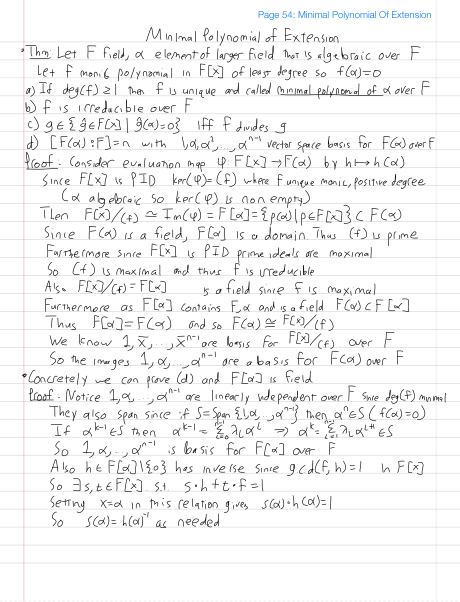 Page 54: Minimal Polynomial Of Extension
Minimal Polynomial of Extension
• Thm: Let F field, α element of larger field that is algebraic over F
Let f monic polynomial in F[x] of least degree so f(α)=0
a) If deg(f) ≥ 1 then f is unique and called minimal polynomial of α over F
b) f is irreducible over F
c) g ∈ {ĝ ∈ F[x] | ĝ(α)=0} iff f divides g
d) [F(α):F]=n with 1, α, α², ..., αⁿ⁻¹ vector space basis for F(α) over F
Proof: Consider evaluation map φ: F[x] → F(α) by h ↦ h(α)
Since F[x] is PID ker(φ)=(f) where f unique monic, positive degree
(α algebraic so ker(φ) is non empty)
Then F[x]/(f) ≃ Im(φ) = F[α] = {p(α) | p ∈ F[x]} ⊂ F(α)
Since F(α) is a field, F[α] is a domain. Thus (f) is prime
Furthermore since F[x] is PID prime ideals are maximal
So (f) is maximal and thus f is irreducible
Also F[x]/(f) = F[α] is a field since f is maximal
Furthermore as F[α] contains F, α and is a field F(α) ⊂ F[α]
Thus F[α] = F(α) and so F(α) ≅ F[x]/(f)
We know 1, x̄, ..., x̄ⁿ⁻¹ are basis for F[x]/(f) over F
So the images 1, α, ..., αⁿ⁻¹ are a basis for F(α) over F
• Concretely we can prove (d) and F[α] is field
Proof: Notice 1, α, ..., αⁿ⁻¹ are linearly independent over F since deg(f) minimal
They also span since if S = Span{1, α, ..., αⁿ⁻¹} then αⁿ ∈ S (f(α)=0)
If αᵏ⁻¹ ∈ S then αᵏ⁻¹ = Σ λᵢ αⁱ ⇒ αᵏ = Σ λᵢ αⁱ⁺¹ ∈ S
So 1, α, ..., αⁿ⁻¹ is basis for F[α] over F
Also h ∈ F[α]\{0} has inverse since gcd(f, h) = 1 in F[x]
So ∃ s, t ∈ F[x] s.t. s·h + t·f = 1
Setting x=α in this relation gives s(α)·h(α)=1
So s(α) = h(α)⁻¹ as needed